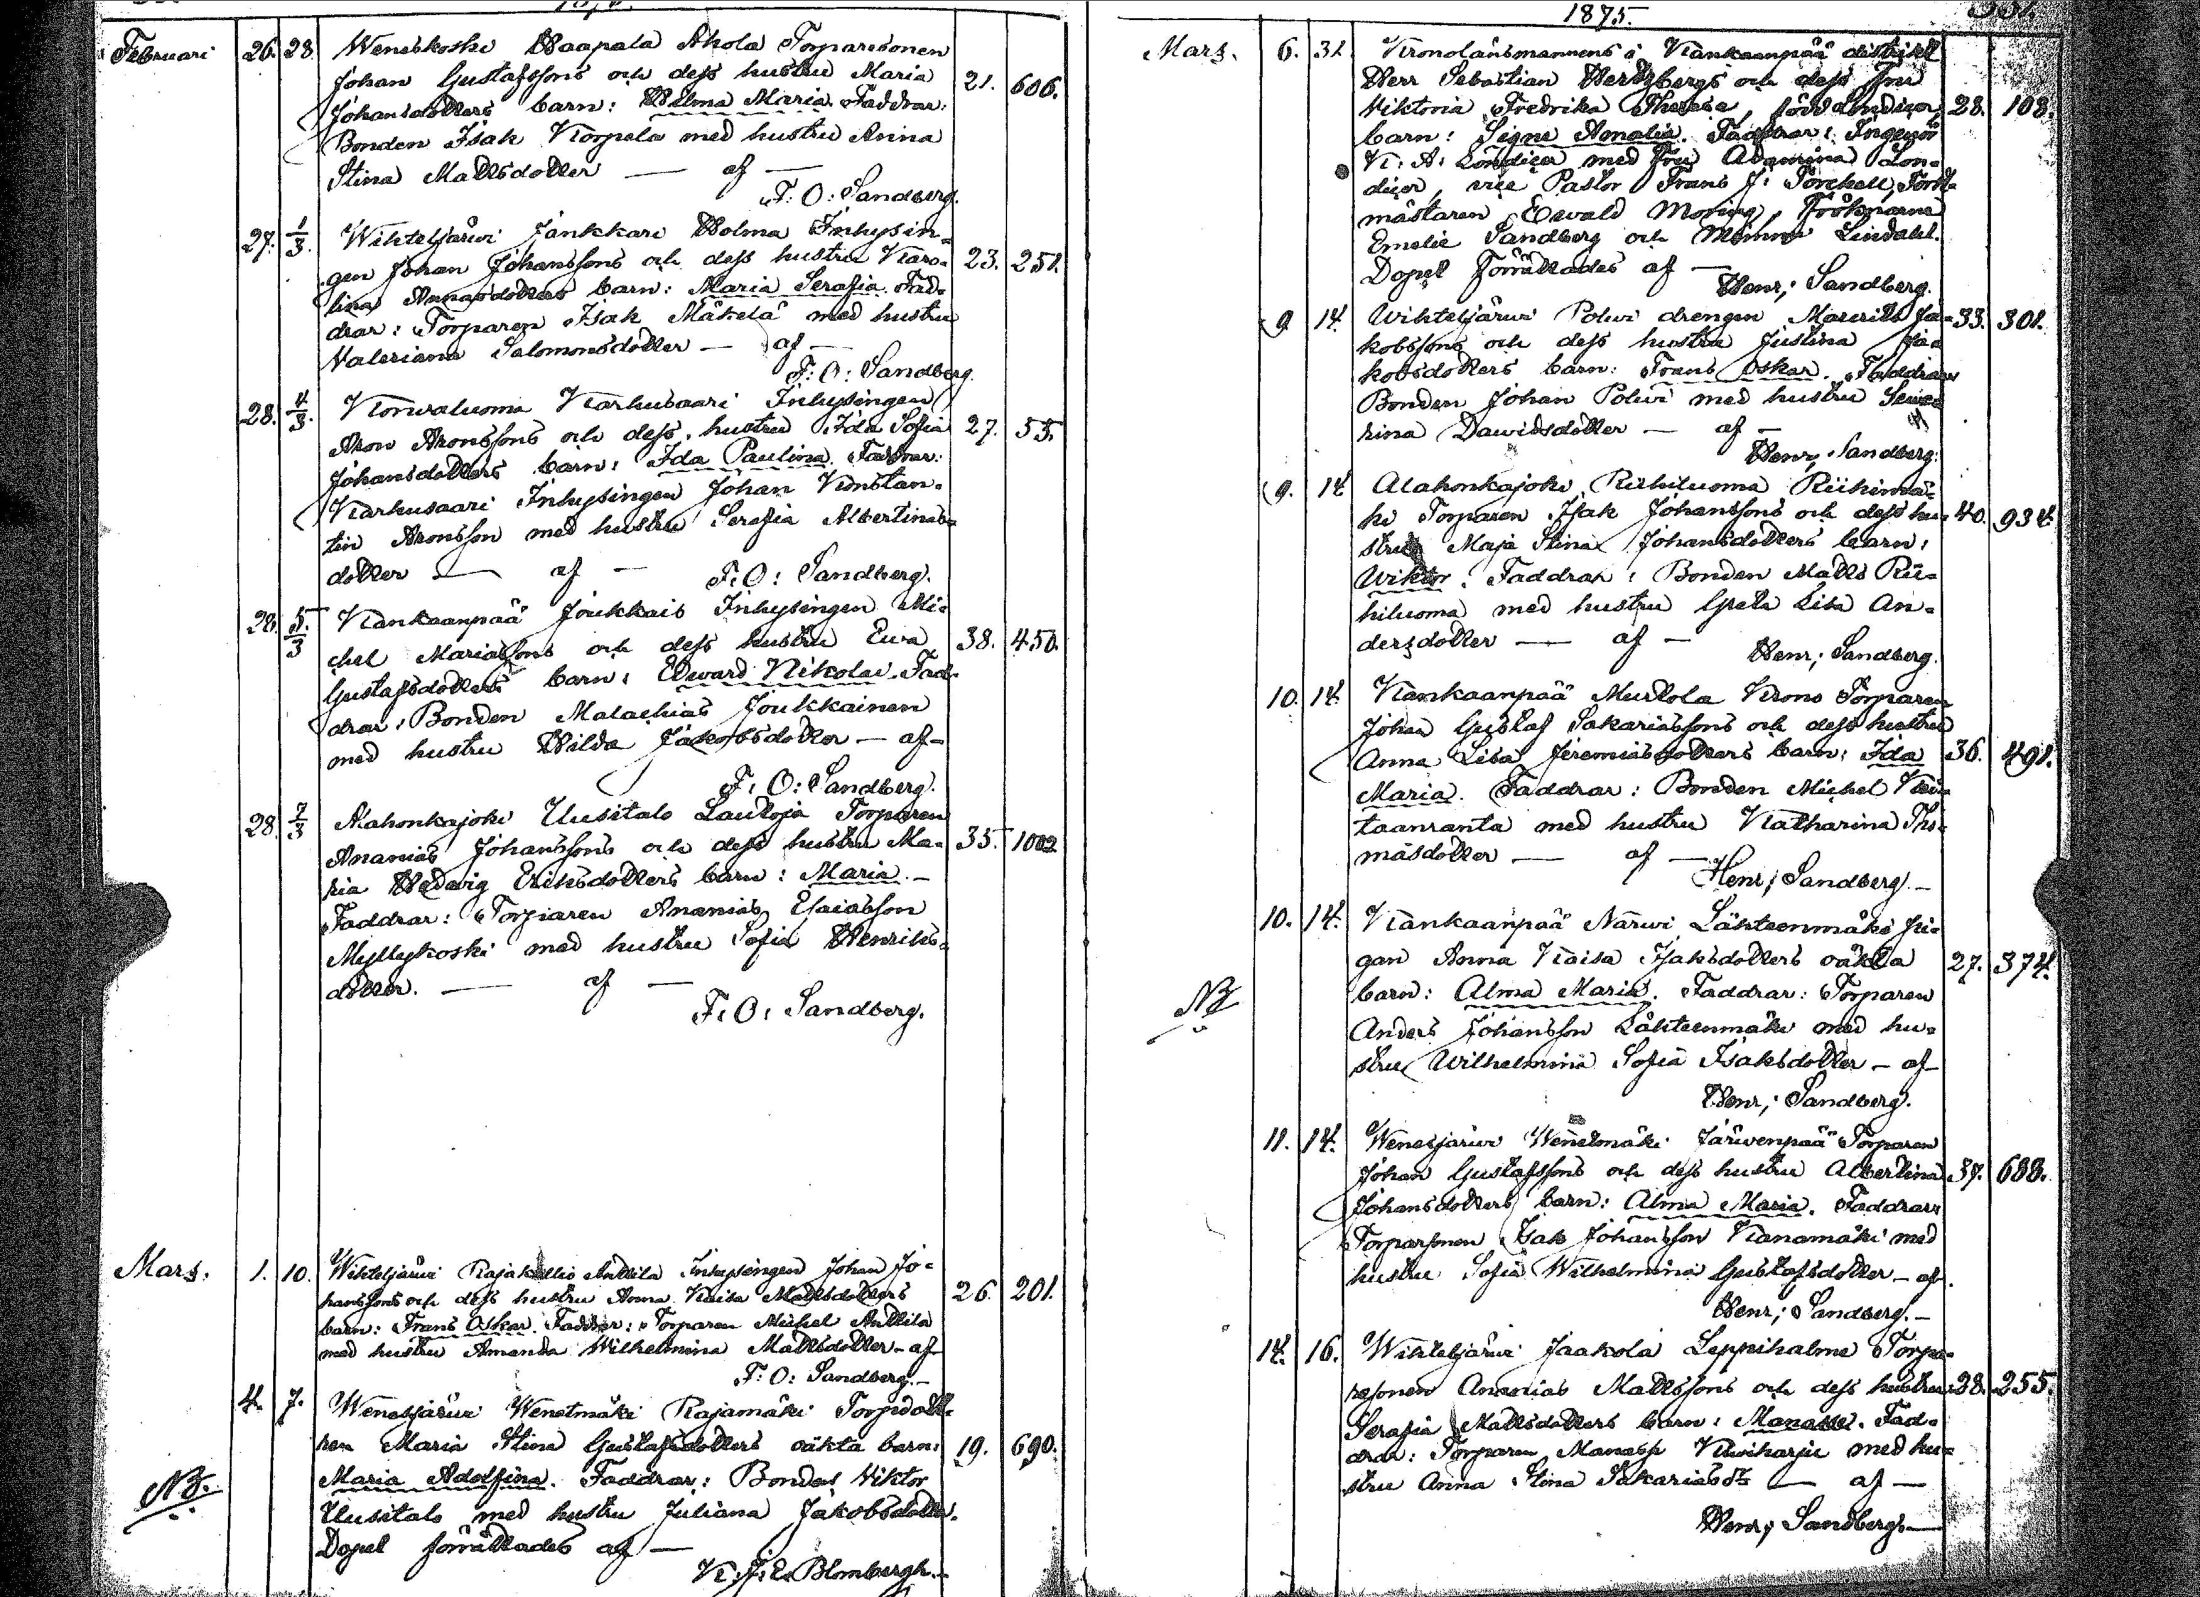 Februari 26. 28. Weneskoski Haapala Ahola Torparesonen
Johan Gustafssons och dess hustru Maria 21. 606.
Johansdotters barn: Hilma Maria. Faddrar:
Bonden Isak Korpela med hustru Anna
Stina Mattsdotter — af —
F: O: Sandberg.
27. 1/3. Wihteljärwi Jankkari Holma Inhysin-
gen Johan Johanssons och dess hustru Karo- 23. 251.
lina Annasdotters barn: Maria Serafia. Fad-
drar: Torparen Isak Mäkelä med hustru
Valeriana Salomonsdotter — af —
F: O: Sandberg.
28. 4/3. Korwaluoma Karhusaari Inhysingen
Aron Aronssons och dess hustru Ida Sofia 27. 55.
Johansdotters barn: Ida Paulina. Faddrar:
Karhusaari Inhysingen Johan Konstan-
tin Aronsson med hustru Serafia Albertina
dotter — af — F: O: Sandberg.
28. 5/3 Kankaanpää Joukkais Inhysingen Mi-
chel Mariassons och dess hustru Ewa 38. 450.
Gustafsdotters barn: Edward Nikolai. Fad-
drar: Bonden Malachias Joukkainen
med hustru Hilda Jakobsdotter — af —
F: O: Sandberg.
28. 7/3 Alahonkajoki Uusitalo Lautoja Torparen
Ananias Johanssons och dess hustru Ma- 35. 1002
ria Hedwig Eriksdotters barn: Maria. —
Faddrar: Torparen Ananias Esaiasson
Myllykoski med hustru Sofia Henriks-
dotter. — af —
F: O: Sandberg.
Mars. 1. 10. Wihteljärwi Rajakallio Anttila Inhysingen Johan Jo-
hanssons och dess hustru Anna Kaisa Mattsdotters 26. 201.
barn: Frans Oskar. Faddrar: Torparen Michel Anttila
med hustru Amanda Wilhelmina Mattsdotter — af
F: O: Sandberg. —
4. 7. Wenesjärwi Wenetmäki Rajamäki Torpdott-
ren Maria Stina Gustafsdotters oäkta barn: 19. 690.
NB. Maria Adolfina. Faddrar: Bonden Viktor
Uusitalo med hustru Juliana Jakobsdotter.
Dopet förrättades af —
K. J: E. Blombergh. —
1875.
Mars. 6. 31. Kronolänsmannens i Kankaanpää distrikt
Herr Sebastian Hertzbergs och dess Fru
Viktoria Fredrika Theresia, född Londicer, 28. 108.
barn: Signe Amalia. Faddrar: Ingeniör
K: A: Londicer med Fru Adamina Lon-
dicer, vice Pastor Frans J: Forchell, Forst-
mästaren Ewald Moring, Fröknarne
Emelie Sandberg och Mimmi Lindahl.
Dopet förrättades af —
Henr; Sandberg.
9. 14. Wihteljärwi Polwi drengen Maurits Ja- 33. 301.
kobssons och dess hustru Justina Ja-
kobsdotters barn: Frans Oskar. Faddrar
Bonden Johan Polwi med hustru Seve-
rina Dawidsdotter — af —
Henr; Sandberg.
9. 14 Alahonkajoki Riihiluoma Riihimä-
ki Torparen Isak Johanssons och dess hu- 40. 934.
stru Maja Stina Johansdotters barn:
Wiktor. Faddrar: Bonden Matts Rii-
hiluoma med hustru Greta Lisa An-
dersdotter — af —
Henr; Sandberg.
10. 14. Kankaanpää Murtola Krono Torparen
Johan Gustaf Sakariassons och dess hustru
Anna Lisa Jeremiasdotters barn: Ida 36. 491.
Maria. Faddrar: Bonden Michel Kii-
taanranta med hustru Katharina Tho-
masdotter — af —
Henr; Sandberg. —
10. 14. Kankaanpää Narwi Lähteenmäki pi-
gan Anna Kaisa Isaksdotters oäkta 27. 374.
NB barn: Alma Maria. Faddrar: Torparen
Anders Johansson Lähteenmäki med hu-
stru Wilhelmina Sofia Isaksdotter — af —
Henr; Sandberg.
11. 14. Wenesjärwi Wenetmäki Järwenpää Torparen
Johan Gustafssons och dess hustru Albertina 37. 688.
Johansdotters barn: Alma Maria. Faddrar:
Torparsonen Isak Johansson Kanamäki med
hustru Sofia Wilhelmina Gustafsdotter — af.
Henr; Sandberg. —
14. 16. Wihteljärwi Jaakola Leppihalme Torpa-
resonen Ananias Mattssons och dess hustru 28. 255.
Serafia Mattsdotters barn: Manasse. Fad-
drar: Torparen Manasse Kiwiharju med hu-
stru Anna Stina Sakariasdr — af —
Henr; Sandberg. —